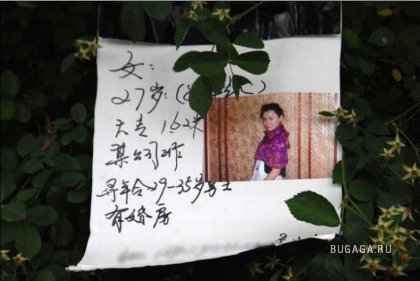 女:
27岁:(
大专 16
某公司工作
寻年令29-35岁男士
有婚房
BUGAGA.RU